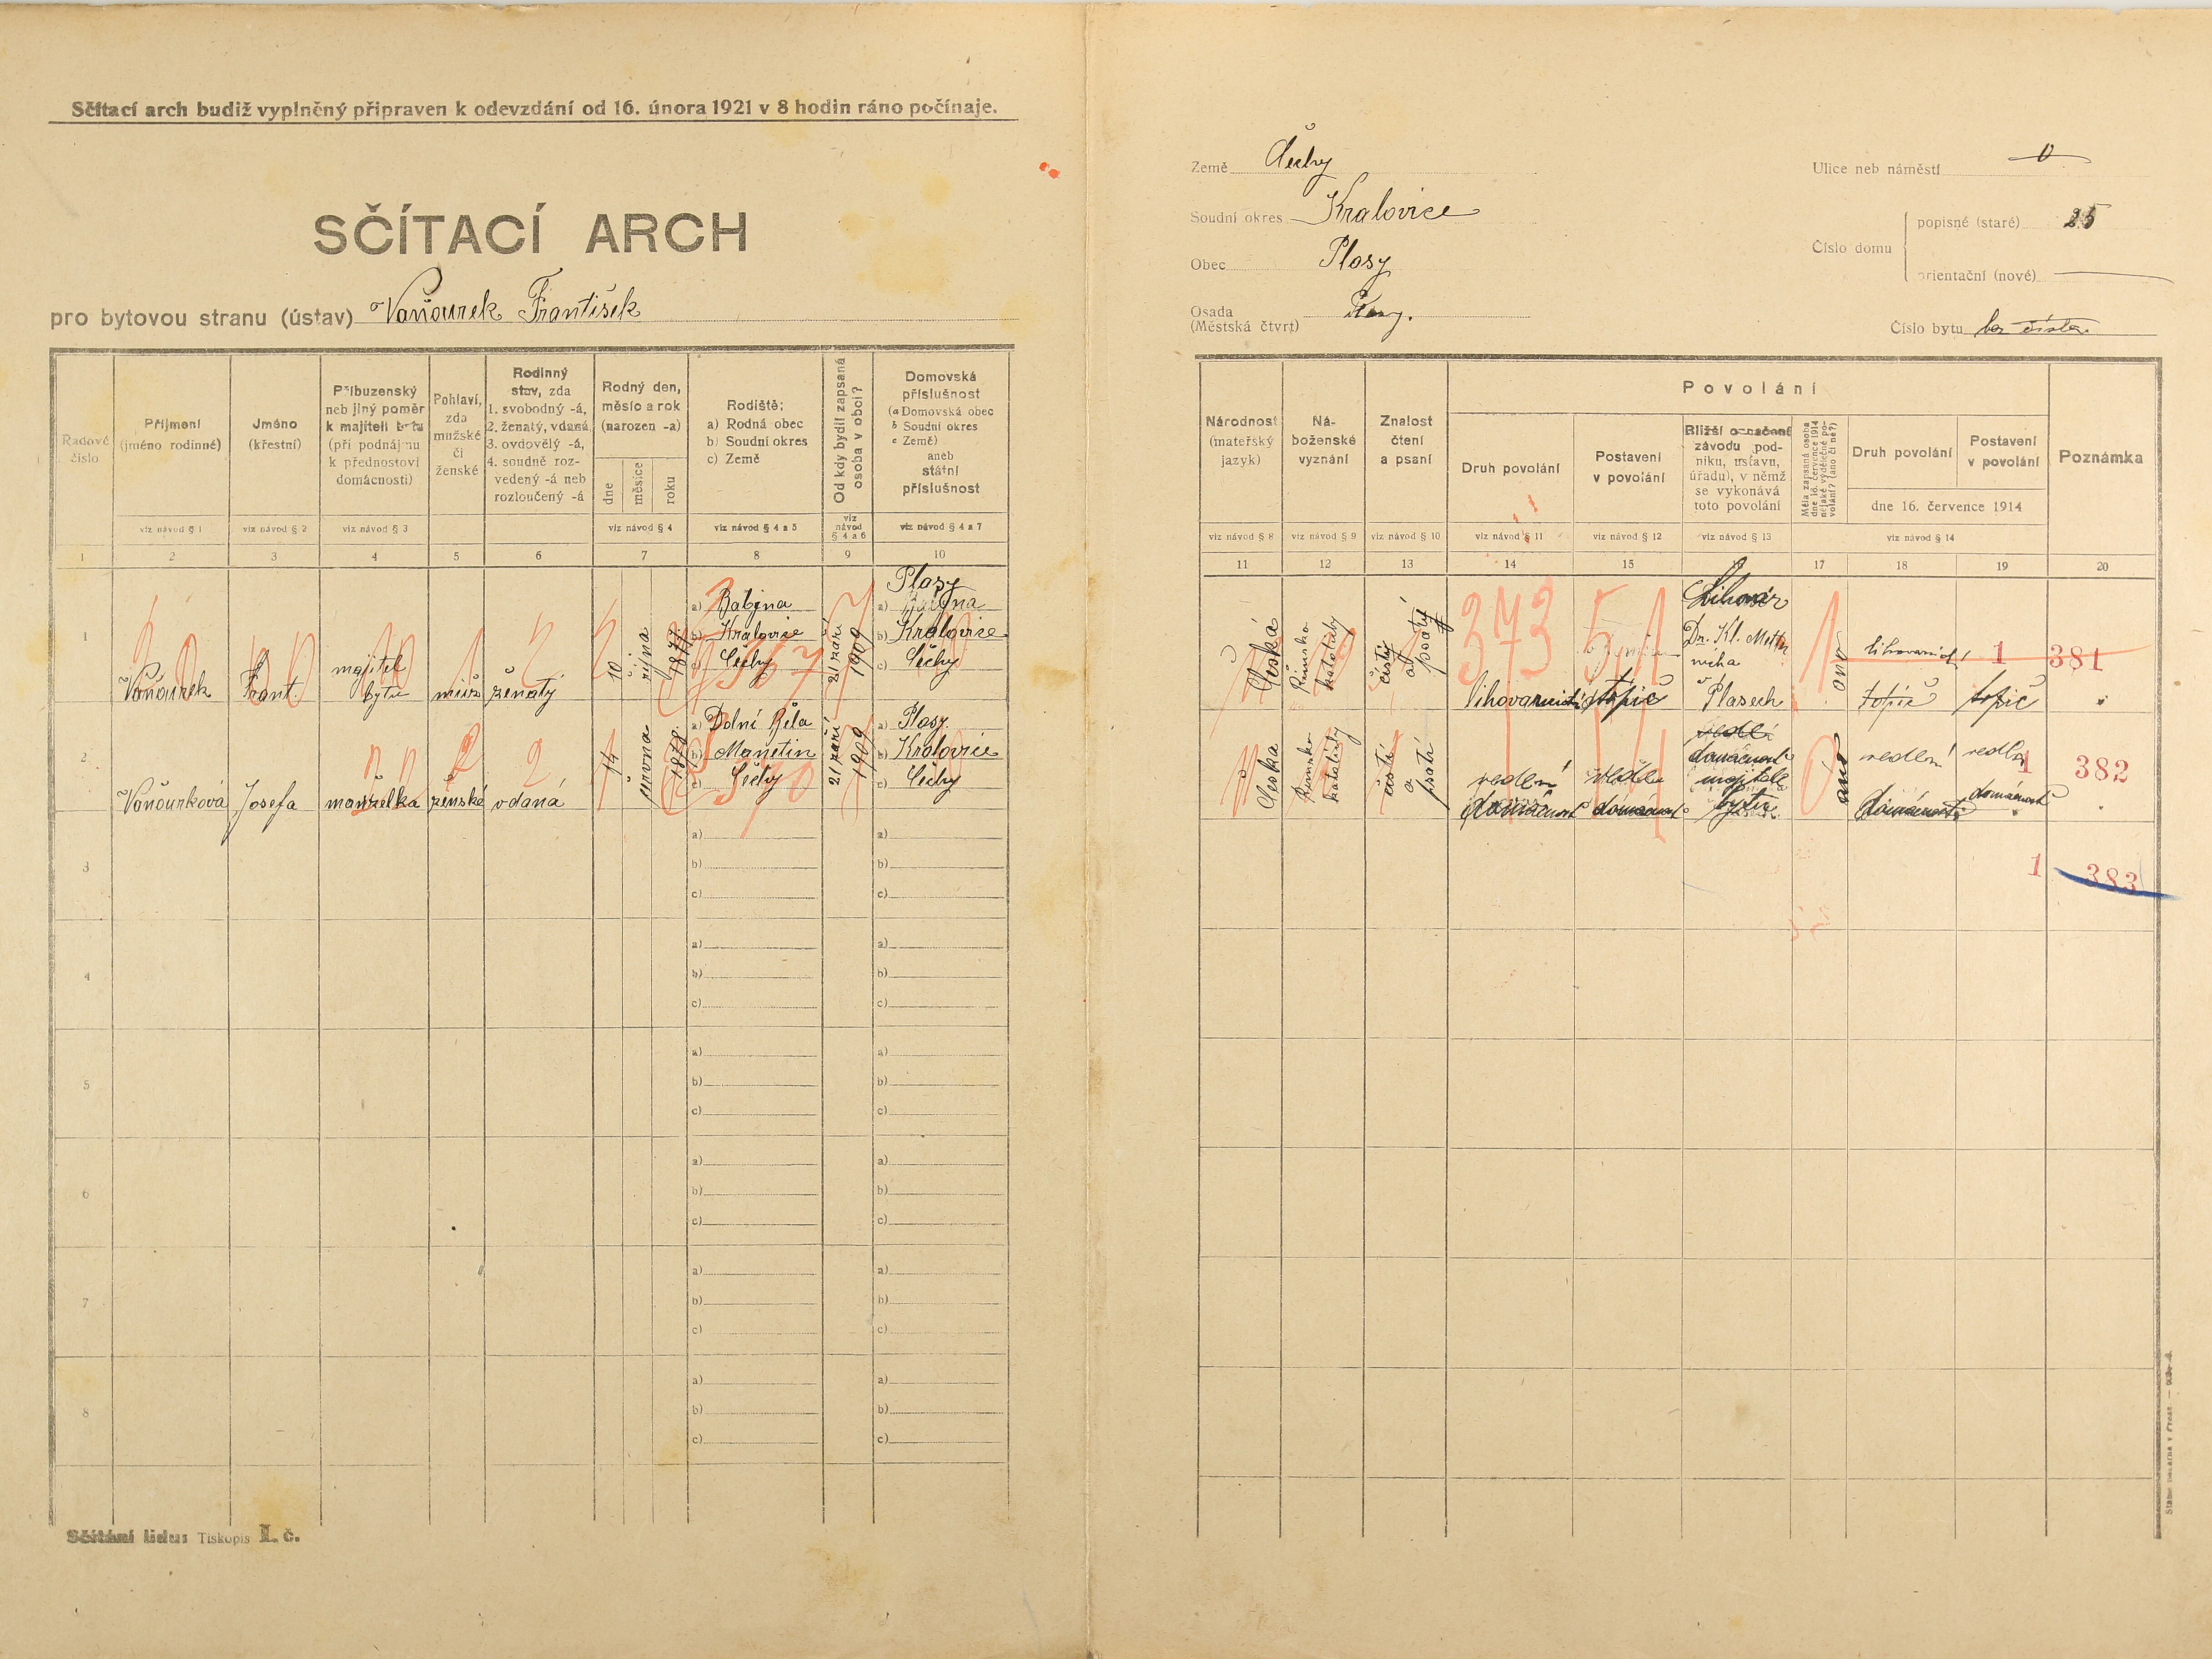 Sčítací arch budiž vyplněný připraven k odevzdání od 16. února 1921 v 8 hodin ráno počínaje.
SČÍTACÍ ARCH
pro bytovou stranu (ústav) Voňourek František
Země Čechy
Soudní okres Kralovice
Obec Plasy
Osada
(Městská čtvrť) Plasy.
Ulice neb náměstí 0
Číslo domu
popisné (staré) 25
orientační (nové)
Číslo bytu bez čísla
Řadové číslo
Příjmení
(jméno rodinné)
viz návod § 1
Jméno
(křestní)
viz návod § 2
Příbuzenský
neb jiný poměr
k majiteli bytu
(při podnájmu
k přednostovi
domácnosti)
viz návod § 3
Pohlaví,
zda
mužské
či
ženské
Rodinný
stav, zda
1. svobodný -á,
2. ženatý, vdaná,
3. ovdovělý -á,
4. soudně roz-
vedený -á neb
rozloučený -á
Rodný den,
měsíc a rok
(narozen -a)
dne
měsíce
roku
viz návod § 4
Rodiště:
a) Rodná obec
b) Soudní okres
c) Země
viz návod § 4 a 5
Od kdy bydlí zapsaná
osoba v obci?
viz
návod
§ 4 a 6
Domovská
příslušnost
(a Domovská obec
b Soudní okres
c Země)
aneb
státní
příslušnost
viz návod § 4 a 7
1 2 3 4 5 6 7 8 9 10
Národnost
(mateřský
jazyk)
viz návod § 8
Ná-
boženské
vyznání
viz návod § 9
Znalost
čtení
a psaní
viz návod § 10
Povolání
Druh povolání
viz návod § 11
Postavení
v povolání
viz návod § 12
Bližší označení
závodu pod-
niku, ústavu,
úřadu), v němž
se vykonává
toto povolání
viz návod § 13
Měla zapsaná osoba
dne 16. července 1914
nějaké výdělečné po-
volání? (ano či ne?)
Druh povolání
Postavení
v povolání
dne 16. července 1914
viz návod § 14
Poznámka
11 12 13 14 15 17 18 19 20
1
Voňourek
Frant.
majitel
bytu
muž
ženatý
10
října
1877
a) Babina
b) Kralovice
c) Čechy
367
21 září
1909
Plasy
a) Babina
b) Kralovice
c) Čechy
Česká
Římsko
katolický
čístí
a
psáti
373
lihovarnictví
51
topič
Lihovar
Dr. Kl. Metter
nicha
v Plasech
1
ano
lihovarnictví
topič
1
topič
381
2
Voňourková
Josefa
manželka
ženské
vdaná
2
14
června
1878
a) Dolní Běla
b) Manětín
c) Čechy
370
21 září
1909
a) Plasy
b) Kralovice
c) Čechy
Česka
Římsko
katolický
čísti
a
psáti
vedení
domácnosti
domácnost
vede
domácnost
majitele
bytu
0
ano
vedení
domácnosti
vedla
1
domácnost
382
3
a)
b)
c)
a)
b)
c)
1
383
4
a)
b)
c)
a)
b)
c)
5
a)
b)
c)
a)
b)
c)
6
a)
b)
c)
a)
b)
c)
7
a)
b)
c)
a)
b)
c)
8
a)
b)
c)
a)
b)
c)
Sčítání lidu: Tiskopis I. č.